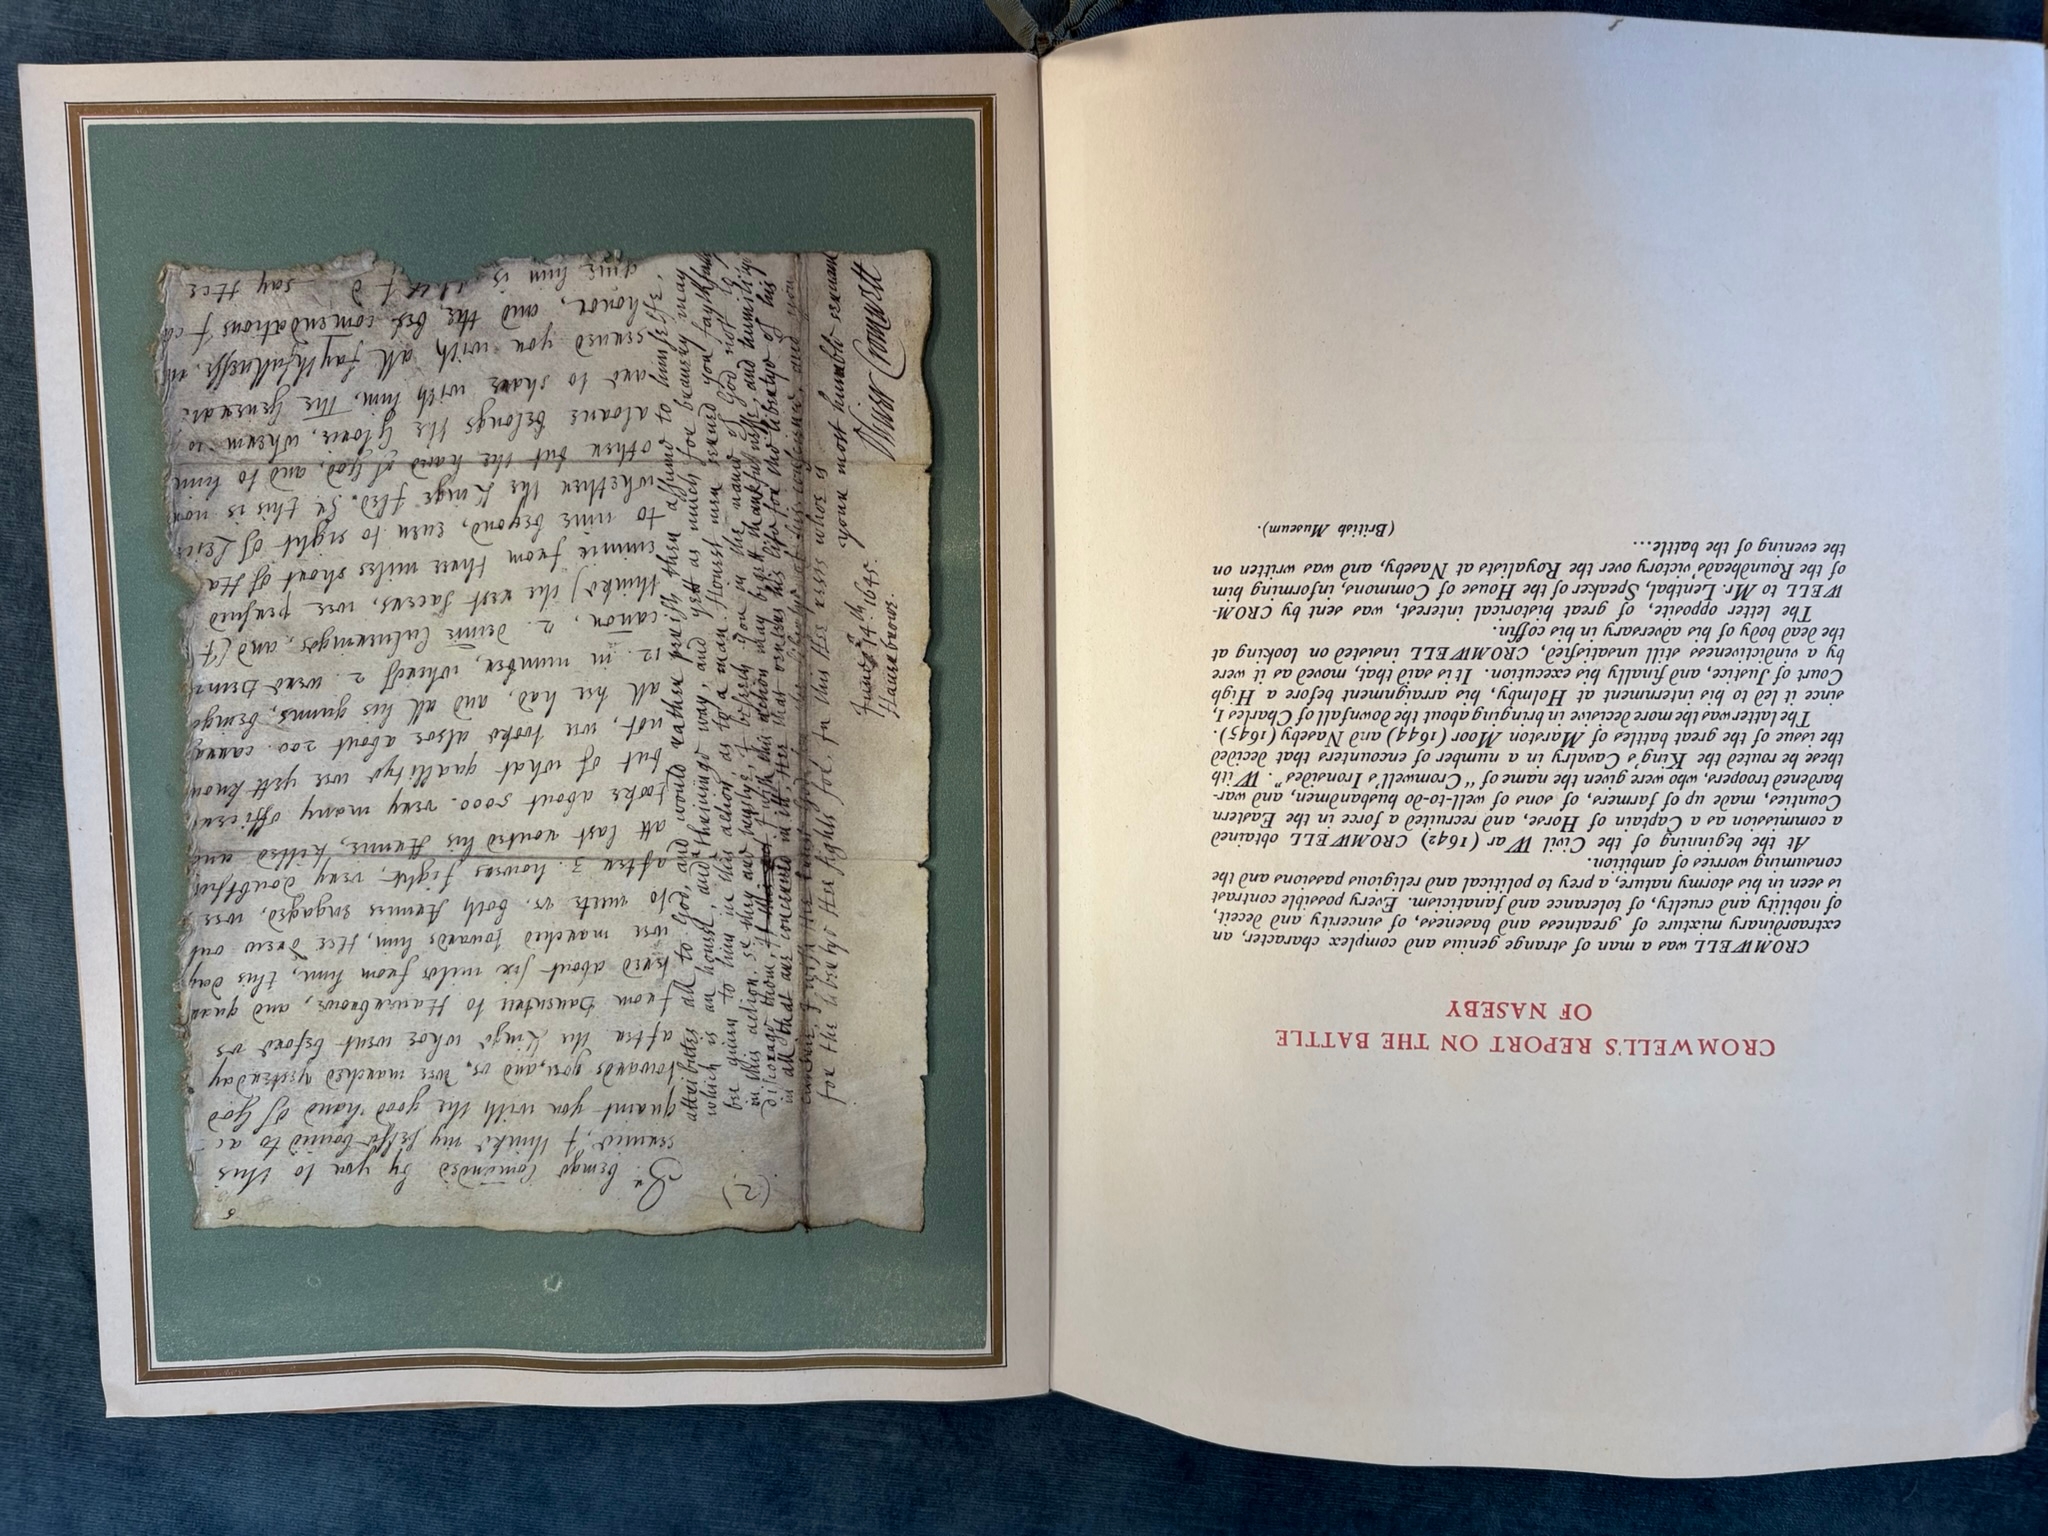 CROMWELL'S REPORT ON THE BATTLE
OF NASEBY
CROMWELL was a man of strange genius and complex character, an
extraordinary mixture of greatness and baseness, of sincerity and deceit,
of nobility and cruelty, of tolerance and fanaticism. Every possible contrast
is seen in his stormy nature, a prey to political and religious passions and the
consuming worries of ambition.
At the beginning of the Civil War (1642) CROMWELL obtained
a commission as a Captain of Horse, and recruited a force in the Eastern
Counties, made up of farmers, of sons of well-to-do husbandmen, and war-
hardened troopers, who were given the name of "Cromwell's Ironsides". With
these he routed the King's Cavalry in a number of encounters that decided
the issue of the great battles of Marston Moor (1644) and Naseby (1645).
The latter was the more decisive in bringing about the downfall of Charles I,
since it led to his internment at Holmby, his arraignment before a High
Court of Justice, and finally his execution. It is said that, moved as it were
by a vindictiveness still unsatisfied, CROMWELL insisted on looking at
the dead body of his adversary in his coffin.
The letter opposite, of great historical interest, was sent by CROM-
WELL to Mr. Lenthal, Speaker of the House of Commons, informing him
of the Roundheads' victory over the Royalists at Naseby, and was written on
the evening of the battle...
(British Museum).
Sr. beinge Comanded by you to this
seruice, I thinke my selfe bound to ac-
quaint you with the good hand of God
towards you, and us. wee marched yesterday
after the Kinge whoe went before us
from Dauentree to Hauerbrowe, and quar
tered about six miles from him, this day
wee marched towards him, Hee drew out
to meete us. both Armies engaged, wee,
after 3. howers fight, very doubtful
att last routed his Armie, killed and
tooke about 5000. very many officers
but of what quallitye wee yett know
not, wee tooke alsoe about 200. carrag
all hee had, and all his gunnes, beinge
12. in number, whereof 2. were demie
canon, 2. demie Culueringes, and (I
thinke) the rest sacres, wee pursued
enimie from three miles short of Ha
to nine beyond, euen to sight of Leic
whether the Kinge fled. Sr. this is non
other but the hand of God, and to him
aloane belongs the Glorie, wherin
and to share with him, The General
serued you with all faythfullnesse
honor, and the best comendations I
giue him is say Hee
attributes all to God, and would rather perish then assume to himselfe,
which is an honest, and a thriuinge way, and yett as much for brauery may
bee giuen to him in this action, as to a man. Honest men serued you faythfully
in this action. Sr they are I beseech you in the name of God not to
discorage them, I wish this action may begett thankfullnesse, and humilitye
in all that are concerned in it, Hee that venters his life for the libertye of his
and you
for the libertye Hee fights for, In this Hee rests whoe is
your most humble seruant
Oliver Cromwell
June 14th. 1645.
Hauerbrowe.
(2)